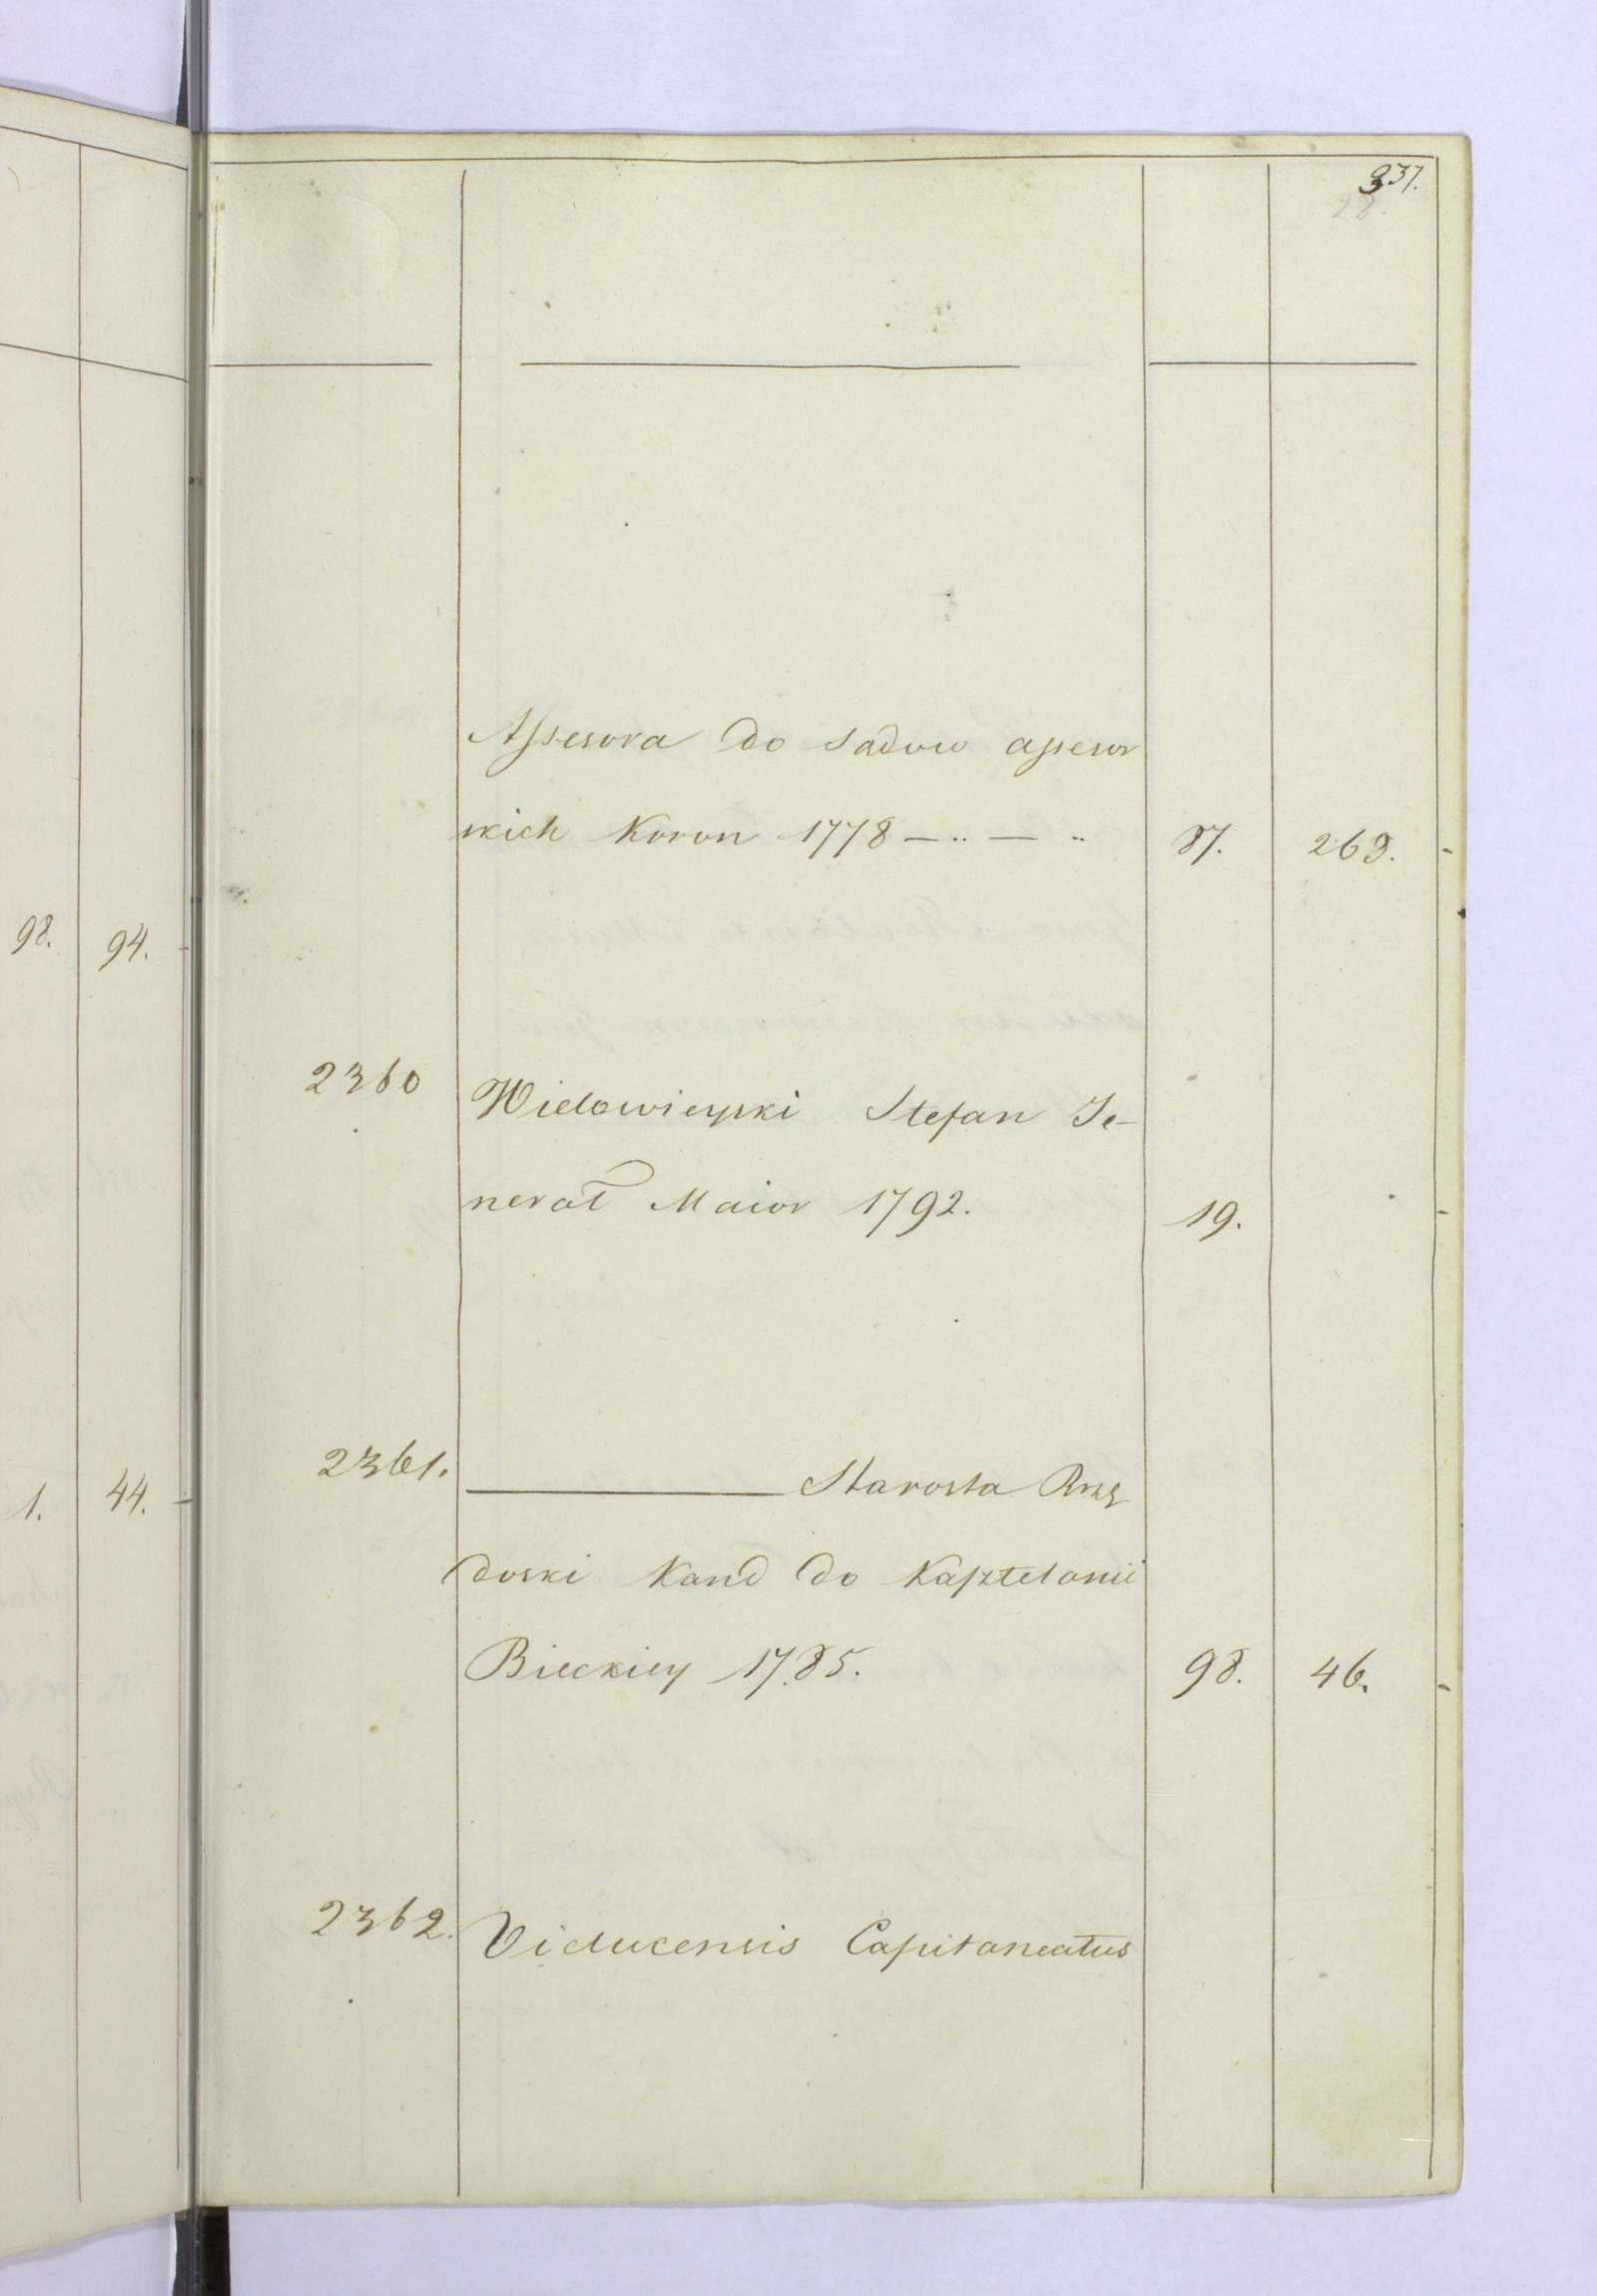 337.
28.
Assesora do Sadow assesor
skich Koron 1778 — .. — .. 87. 269.
98. 94.
2360 Wielowieyski Stefan Je-
nerał Maior 1792. 19.
2361. ——— Starosta Rzą
doski Kand do Kasztelanii
1. 44.
Bieckiey 1785. 98. 46.
2362. Viducensis Capitaneatus